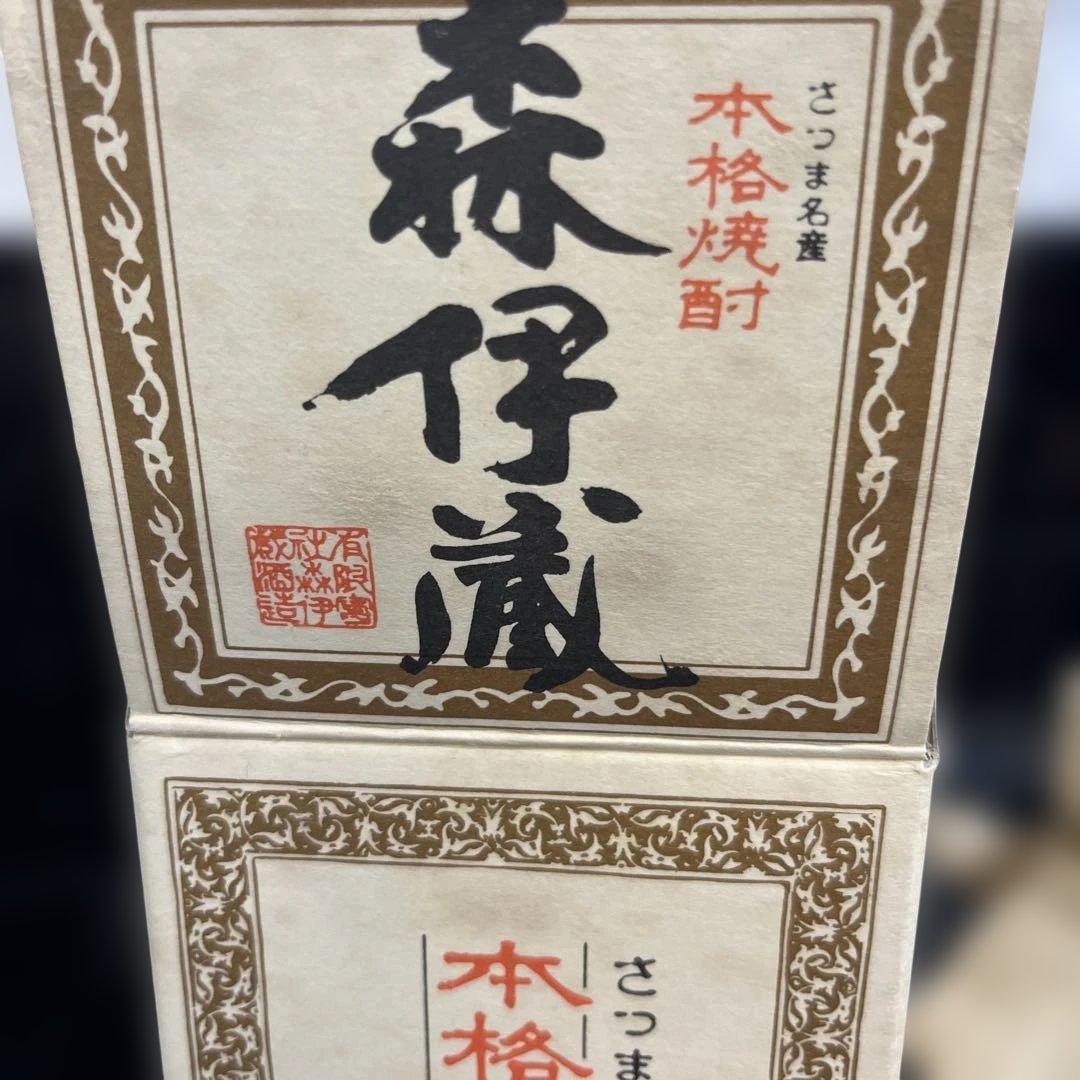 さつま名産
本格焼酎
森伊蔵
有限会
社森伊
蔵酒造
さつま
本格